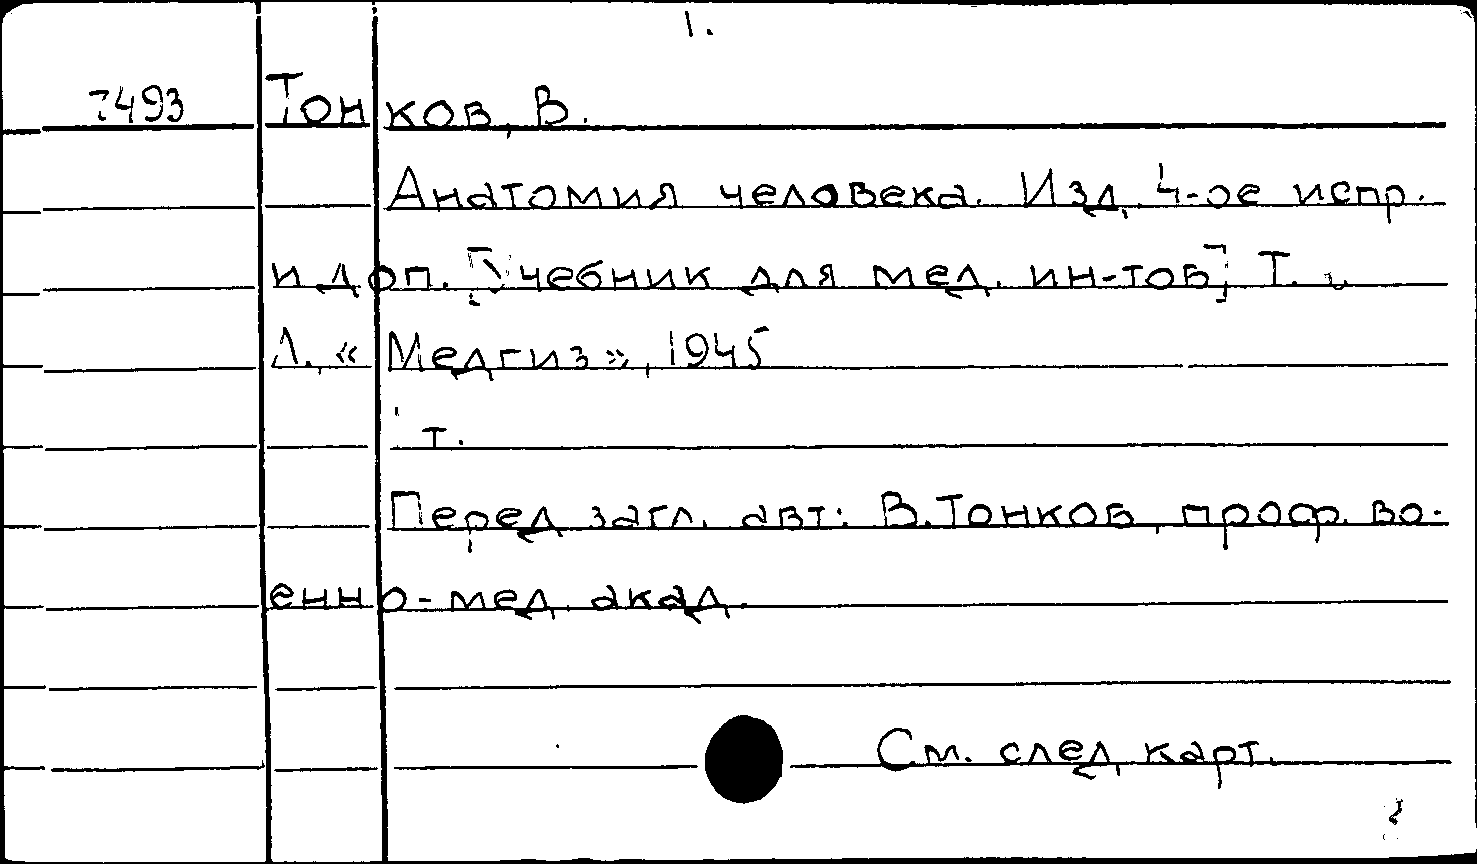 1.
7493 Тонков, В.
Анатомия человека. Изд. 4-ое испр.
и доп. [Учебник для мед. ин-тов] Т.
Л., «Медгиз», 1945
т.
Перед загл. авт: В.Тонков, проф. во-
енно-мед. акад.
См. след. карт.